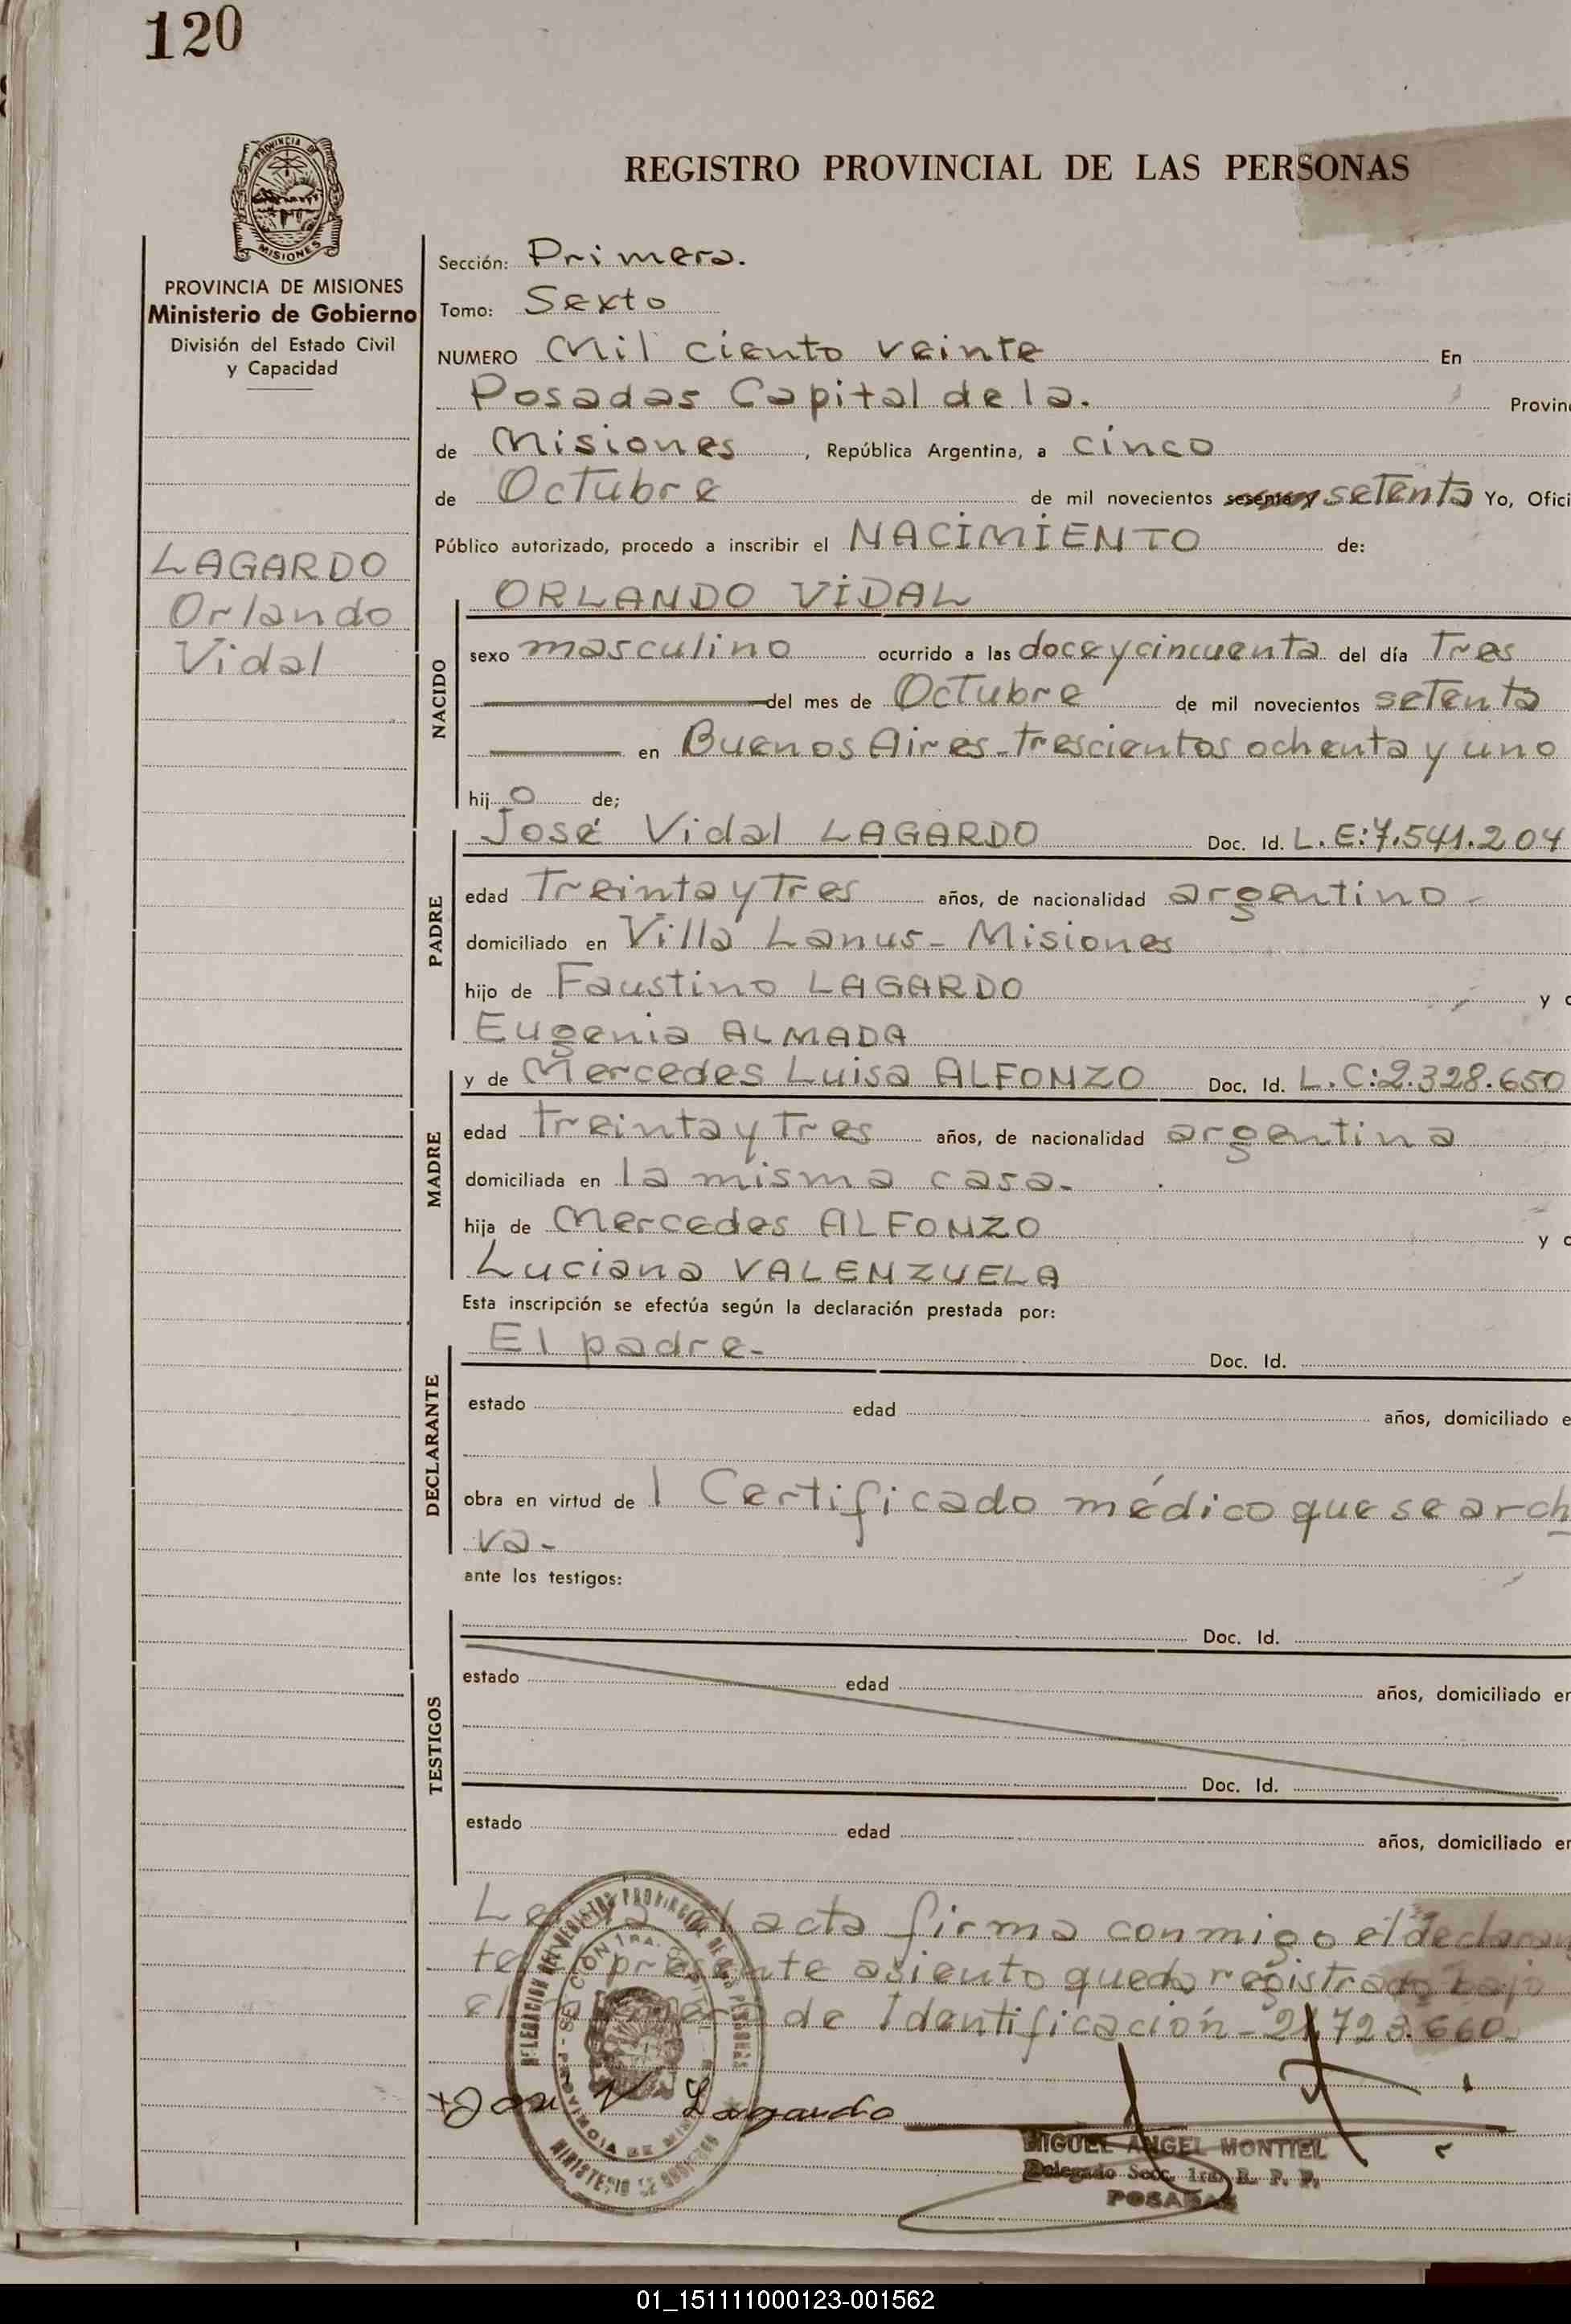 120
PROVINCIA DE
MISIONES
PROVINCIA DE MISIONES
Ministerio de Gobierno
División del Estado Civil
y Capacidad
LAGARDO
Orlando
Vidal
REGISTRO PROVINCIAL DE LAS PERSONAS
Sección: Primera.
Tomo: Sexto
NUMERO Mil ciento veinte En
Posadas Capital de la. Provin
de Misiones, República Argentina, a cinco
de Octubre de mil novecientos setenta Yo, Ofici
Público autorizado, procedo a inscribir el NACIMIENTO de:
NACIDO
ORLANDO VIDAL
sexo masculino ocurrido a las doce y cincuenta del día Tres
del mes de Octubre de mil novecientos setenta
en Buenos Aires - trescientos ochenta y uno
hijo de;
PADRE
José Vidal LAGARDO Doc. Id. L.E:7.541.204
edad Treinta y Tres años, de nacionalidad argentino -
domiciliado en Villa Lanus - Misiones
hijo de Faustino LAGARDO y
Eugenia ALMADA
MADRE
y de Mercedes Luisa ALFONZO Doc. Id. L.C:2.328.650
edad treinta y Tres años, de nacionalidad argentina
domiciliada en la misma casa-
hija de Mercedes ALFONZO y
Luciana VALENZUELA
Esta inscripción se efectúa según la declaración prestada por:
DECLARANTE
El padre- Doc. Id.
estado edad años, domiciliado e
obra en virtud de 1 Certificado médico que se arch
va-
ante los testigos:
TESTIGOS
Doc. Id.
estado edad años, domiciliado en
Doc. Id.
estado edad años, domiciliado en
acta firma conmigo el declaran
te presente asiento queda registrado bajo
el de Identificación - 723.660
José V Lagardo
MIGUEL ANGEL MONTIEL
Delegado Secc. 1ra. R. P. P.
POSADAS
01_151111000123-001562